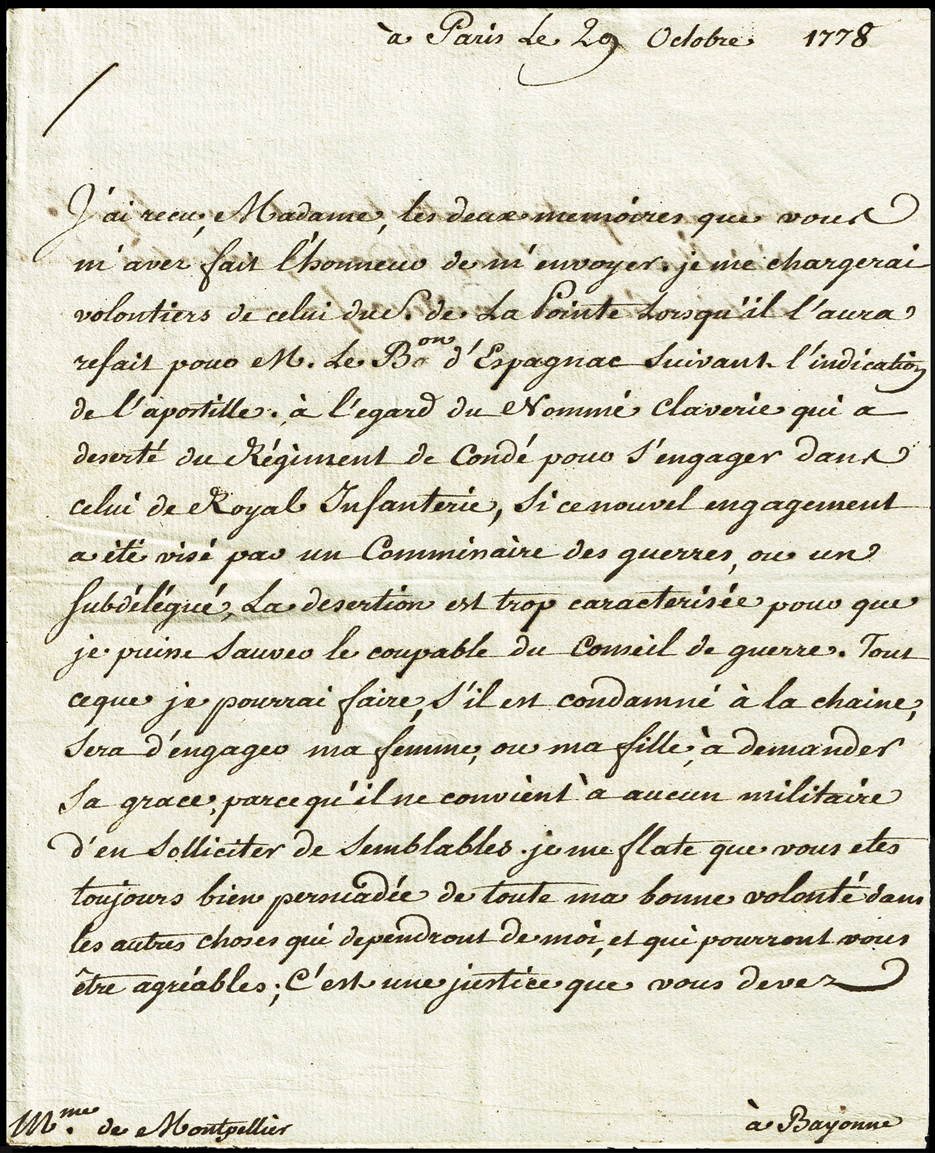 à Paris Le 29 Octobre 1778
J'ai reçu, Madame, les deux memoires que vous
m'avez fait l'honneur de m'envoyer. je me chargerai
volontiers de celui du S. de La Pointe Lorsqu'il l'aura
refait pour M. Le Bon d'Espagnac suivant l'indication
de l'apostille. à l'egard du Nommé Claverie qui a
deserté du Régiment de Condé pour s'engager dans
celui de Royal Infanterie, si ce nouvel engagement
a été visé par un Commissaire des guerres, ou un
subdélégué, La desertion est trop caracterisée pour que
je puisse sauver le coupable du Conseil de guerre. Tout
ceque je pourrai faire, s'il est condamné à la chaine,
sera d'engager ma femme, ou ma fille, à demander
sa grace, parcequ'il ne convient à aucun militaire
d'en solliciter de semblables. je me flate que vous etes
toujours bien persuadée de toute ma bonne volonté dans
les autres choses qui dependront de moi, et qui pourront vous
être agréables; C'est une justice que vous devez
Mme. de Montpellier à Bayonne